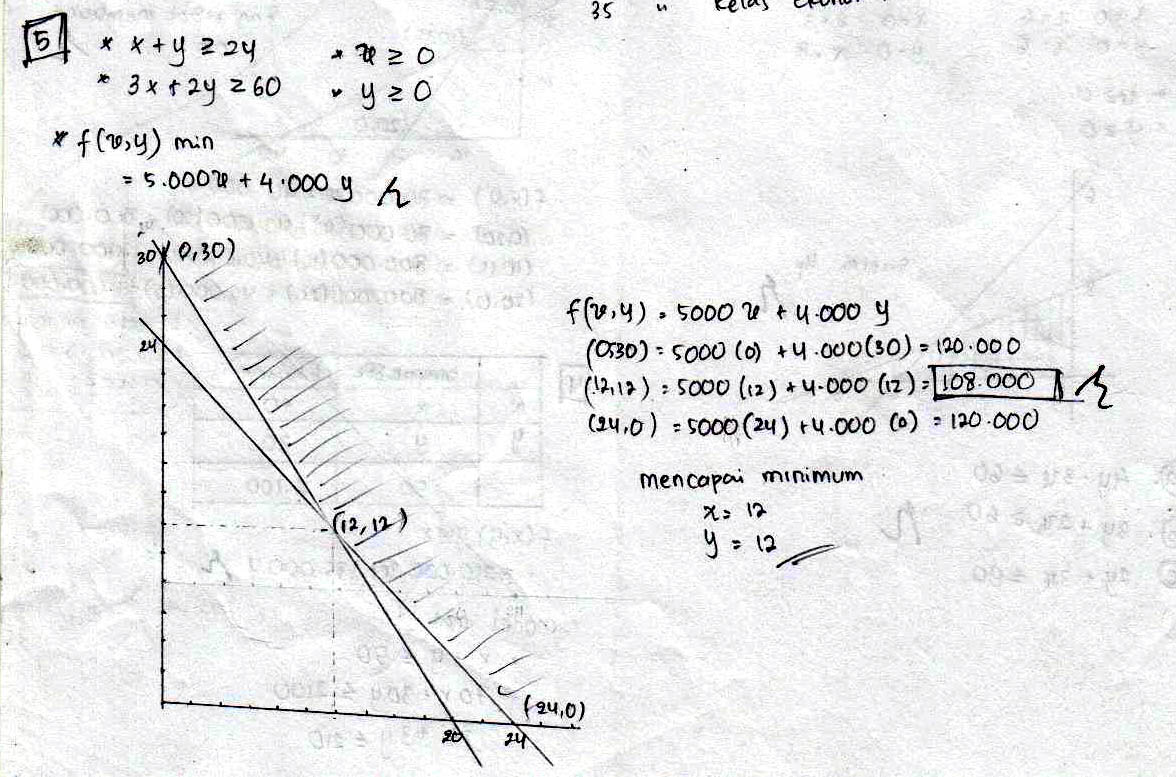 35 " kelas
5
* x + y ≥ 24
* x ≥ 0
* 3x + 2y ≥ 60
* y ≥ 0
* f(x,y) min
= 5.000x + 4.000 y
30 (0,30)
24
(12,12)
(24,0)
20 24
f(x,y) = 5000 x + 4.000 y
(0,30) = 5000 (0) + 4.000(30) = 120.000
(12,12) = 5000 (12) + 4.000 (12) = 108.000
(24,0) = 5000(24) + 4.000 (0) = 120.000
mencapai minimum
x = 12
y = 12